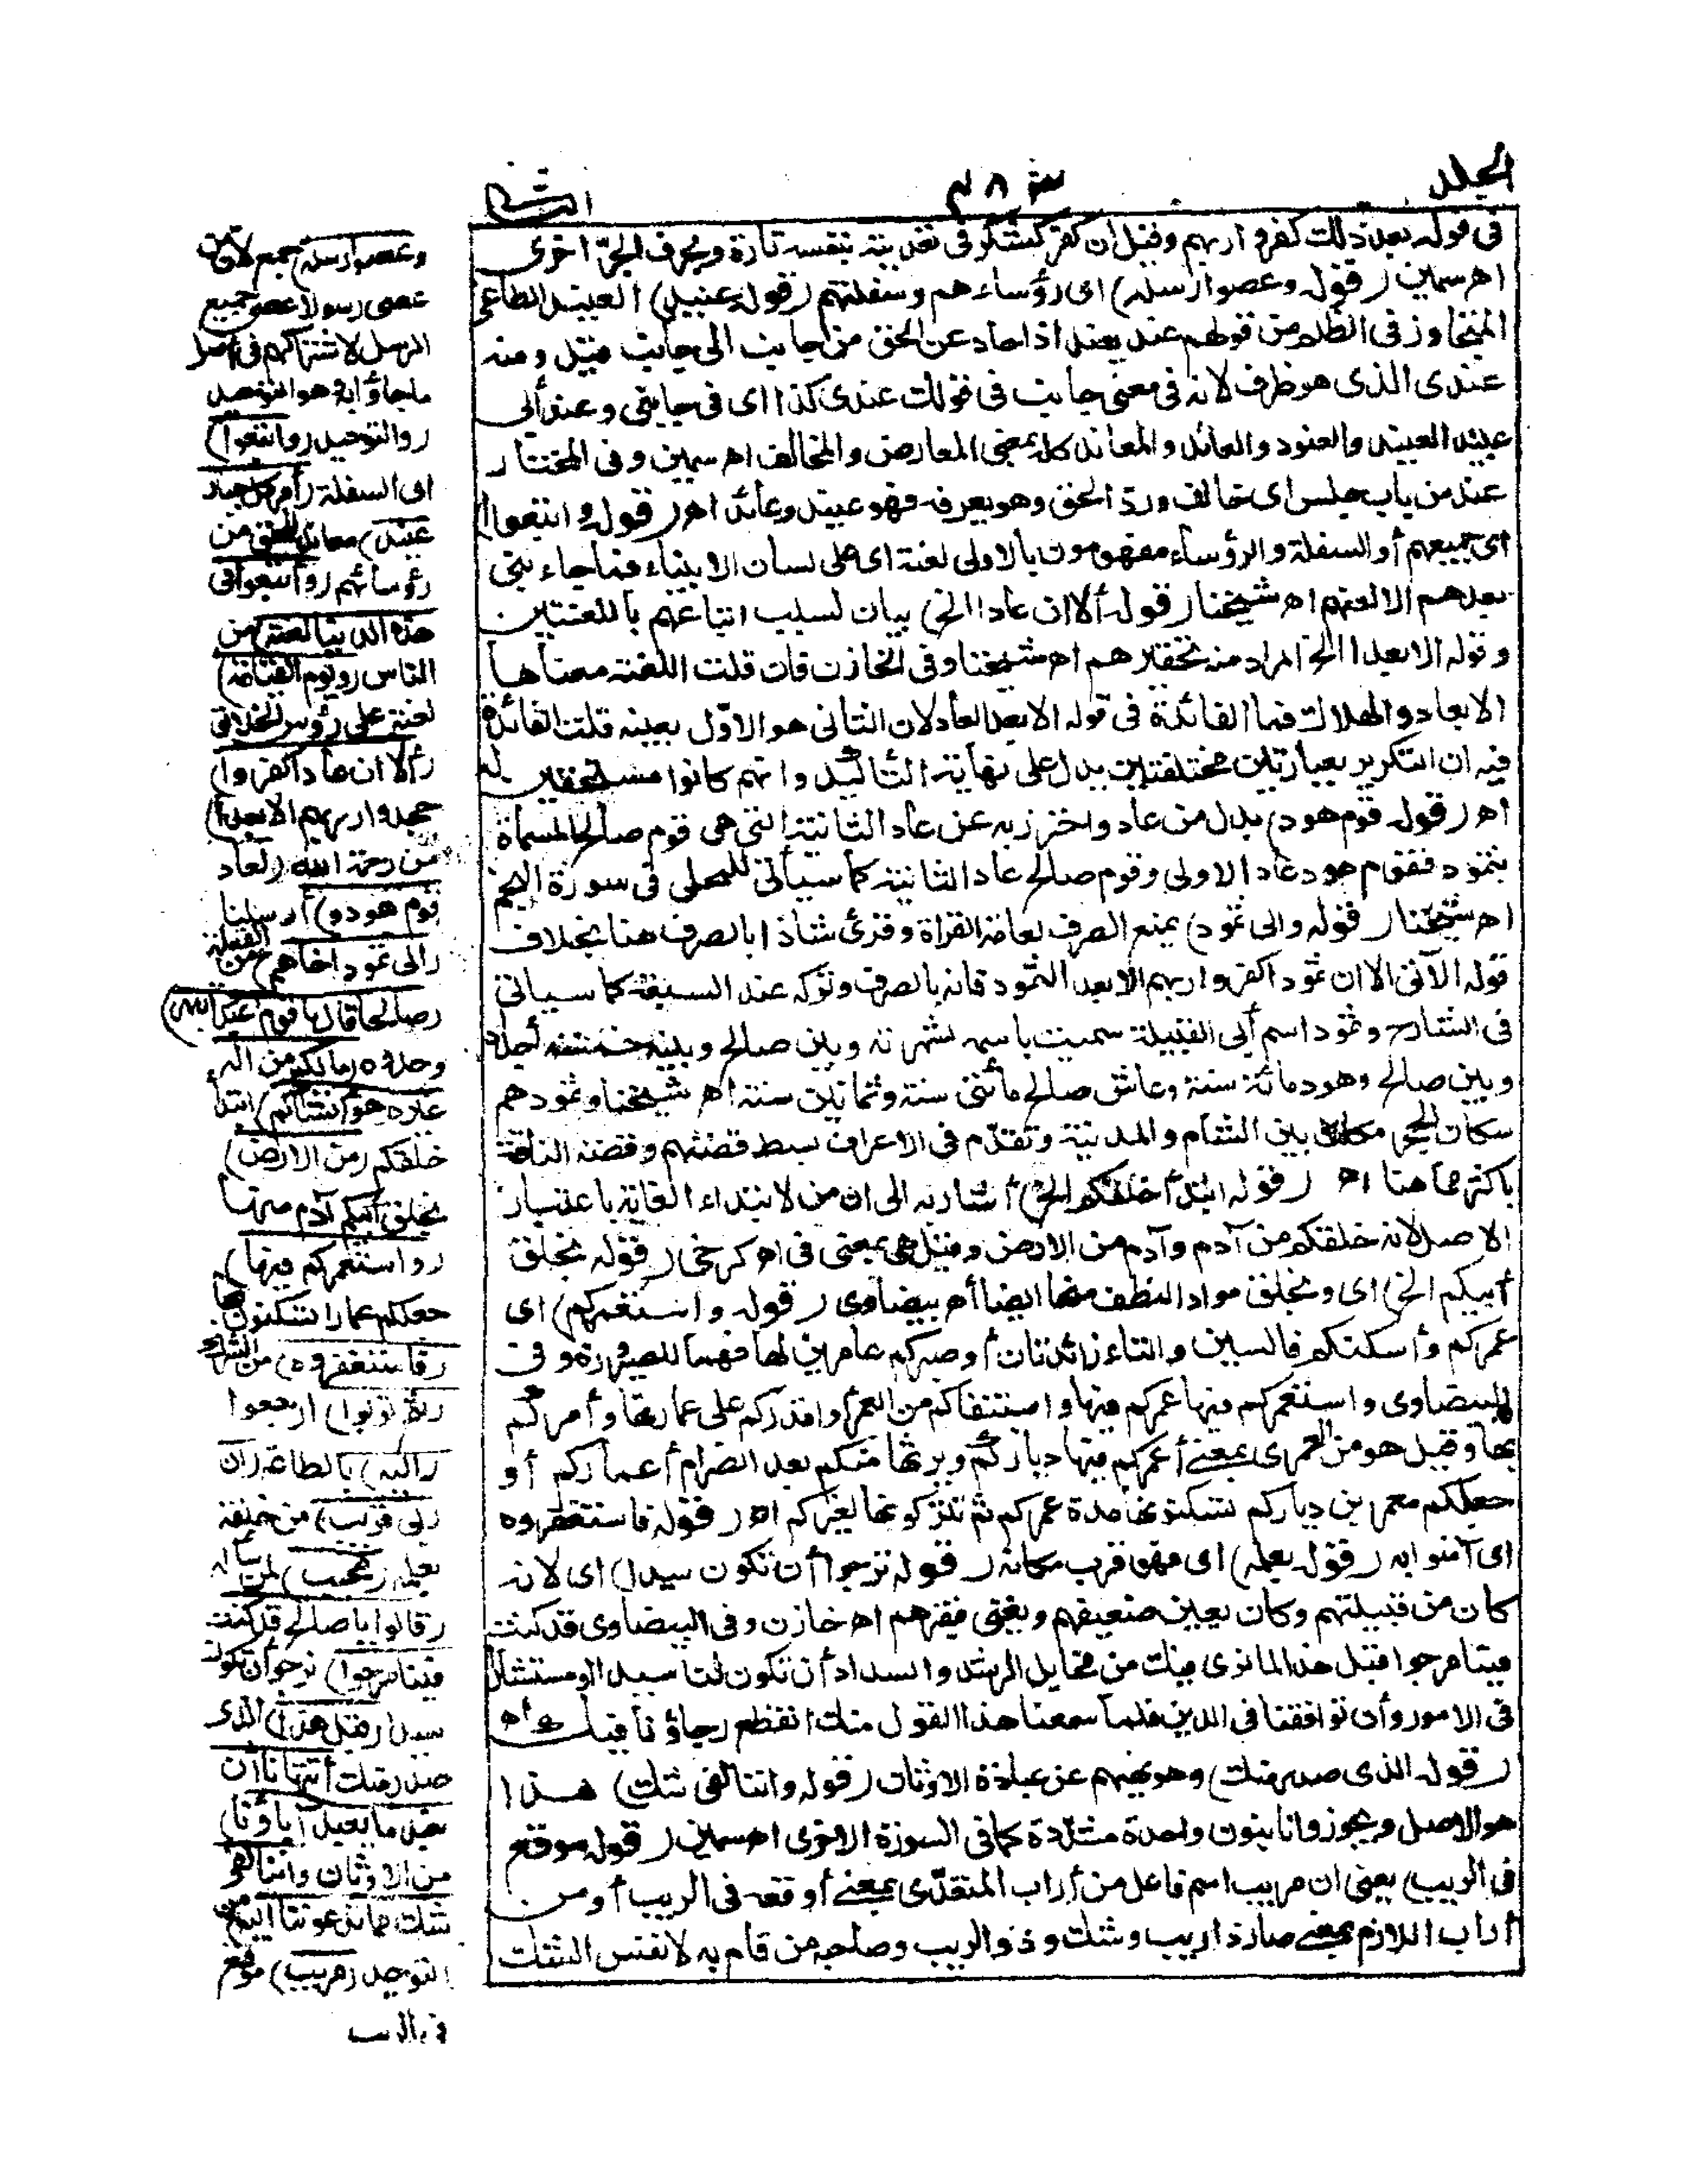 المجلد
٤٠٨
الثانى
فى قوله بعد ذلك كفروا ربهم وقيل ان كفر كشكر فى تعديته بنفسه تارة وبحرف الجر اخرى
اه سمين (قوله وعصوا رسله) اى رؤساءهم وسفلتهم (قوله عنيد) العنيد الطاغى
المتجاوز فى الظلم من قولهم عند يعند اذا حاد عن الحق من جانب الى جانب قيل ومنه
عندى الذى هو ظرف لانه فى معنى جانب فى قولك عندى كذا اى فى جانبى وعند أبى
عبيد العنيد والعنود والعاند والمعاند كله بمعنى المعارض والمخالف اه سمين وفى المختار
عند من باب جلس اى خالف ورد الحق وهو يعرفه فهو عنيد وعاند اه (قوله واتبعوا)
اى جميعهم أو السفلة والرؤساء مفهومون بالاولى لعنة اى على لسان الانبياء فما جاء نبى
بعدهم الا لعنهم اه شيخنا (قوله ألا ان عادا الخ) بيان لسبب اتباعهم باللعنتين
وقوله الا بعدا الخ المراد منه تحقيرهم اه شيخنا وفى الخازن فان قلت اللعنة معناها
الابعاد والهلاك فما الفائدة فى قوله الا بعدا لعاد لان الثانى هو الاوّل بعينه قلت الفائدة
فيه ان التكرير بعبارتين مختلفتين يدل على نهاية التأكيد وانهم كانوا مستحقين له
اه (قوله قوم هود) بدل من عاد واحترز به عن عاد الثانية التى هى قوم صالح المسماة
بثمود فقوم هود عاد الاولى وقوم صالح عاد الثانية كما سيأتى للمحلى فى سورة النجم
اه شيخنا (قوله والى ثمود) بمنع الصرف لعامة القراة وقرئ شاذا بالصرف هنا بخلاف
قوله الآتى الا ان ثمود اكفروا ربهم الا بعدا لثمود فانه بالصرف وتركه عند السبعة كما سيأتى
فى الشارح وثمود اسم أبى القبيلة سميت باسمه لشهرته وبين صالح وبينه خمسة أجداد
وبين صالح وهود مائة سنة وعاش صالح مائتى سنة وثمانين سنة اه شيخنا وثمود هم
سكان الحجر مكان بين الشام والمدينة وتقدّم فى الاعراف بسط قصتهم وقصة الناقة
باكثر مما هنا اه (قوله ابتدأ خلقكم الخ) أشار به الى ان من لابتداء الغاية باعتبار
الاصل لانه خلقكم من آدم وآدم من الارض وقيل هى بمعنى فى اه كرخى (قوله بخلق
أبيكم الخ) اى وبخلق مواد النطف منها ايضا اه بيضاوى (قوله واستعمركم) اى
عمركم وأسكنكم فالسين والتاء زائدتان أو صيركم عامرين لها فهما للصيرورة وفى
البيضاوى واستعمركم فيها عمركم فيها واستبقاكم من العمر أو اقدركم على عمارتها وأمركم
بها وقيل هو من العمرى بمعنى أعمركم فيها دياركم ويرثها منكم بعد انصرام أعماركم أو
جعلكم معمرين دياركم تسكنونها مدة عمركم ثم تتركونها لغيركم اه (قوله فاستغفروه
اى آمنوا به (قوله بعلمه) اى فهو قرب مكانة (قوله نرجو أن تكون سيدا) اى لانه
كان من قبيلتهم وكان يعين ضعيفهم ويغنى فقيرهم اه خازن وفى البيضاوى قد كنت
فينا مرجوا قبل هذا لما نرى فيك من مخايل الرشد والسداد أن تكون لنا سيدا او مستشارا
فى الامور وأن توافقنا فى الدين فلما سمعنا هذا القول منك انقطع رجاؤنا فيك اه
(قوله الذى صدر منك) وهو نهيهم عن عبادة الاوثان (قوله واننا لفى شك) هذا
هو الاصل ويجوز وانا بنون واحدة مشدّدة كما فى السورة الاخرى اه سمين (قوله موقع
فى الريب) يعنى ان مريب اسم فاعل من أراب المتعدّى بمعنى أوقعه فى الريب أو من
أراب اللازم بمعنى صار ذا ريب وشك وذو الريب وصاحبه من قام به لا نفس الشك
وعصوا رسله) جمع لان من
عصى رسولا عصى جميع
الرسل لاشتراكهم فى أصل
ما جاؤا به وهو التوحيد
(واتبعوا)
اى السفلة (أمر كل جبار
عنيد) معاند للحق من
رؤسائهم (وأتبعوا فى
هذه الدنيا لعنة) من
الناس (ويوم القيامة)
لعنة على رؤس الخلائق
(ألا ان عادا كفروا)
جحدوا (ربهم الا بعدا)
من رحمة الله (لعاد
قوم هود و) أرسلنا
(الى ثمود اخاهم) من القبيلة
(صالحا قال يا قوم اعبدوا الله)
وحدوه (ما لكم من اله
غيره هو أنشأكم) ابتدأ
خلقكم (من الارض)
بخلق أبيكم آدم منها
(واستعمركم فيها)
جعلكم عمارا تسكنون بها
(فاستغفروه) من الشرك
(ثم توبوا) ارجعوا
(اليه) بالطاعة (ان
ربى قريب) من خلقه
بعلمه (مجيب) لمن سأله
(قالوا يا صالح قد كنت
فينا مرجوا) نرجو أن تكون
سيدا (قبل هذا) الذى
صدر منك (أتنهانا أن
نعبد ما يعبد آباؤنا)
من الاوثان (واننا لفى
شك مما تدعونا اليه) من
التوحيد (مريب) موقع
فى الريب